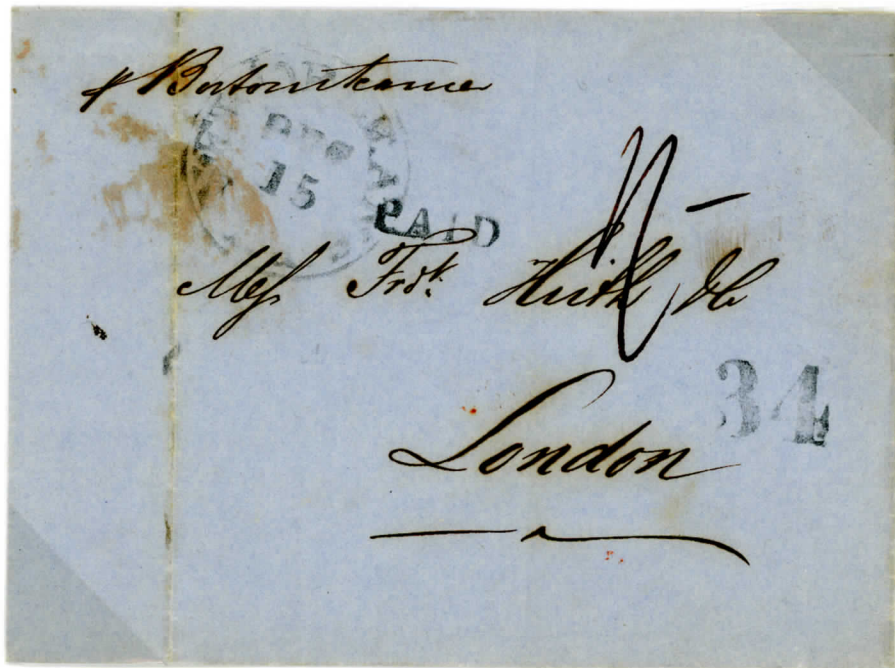 p Boston steamer
DEC
15
PAID
Mess Fredk. Huth & Co
34
London